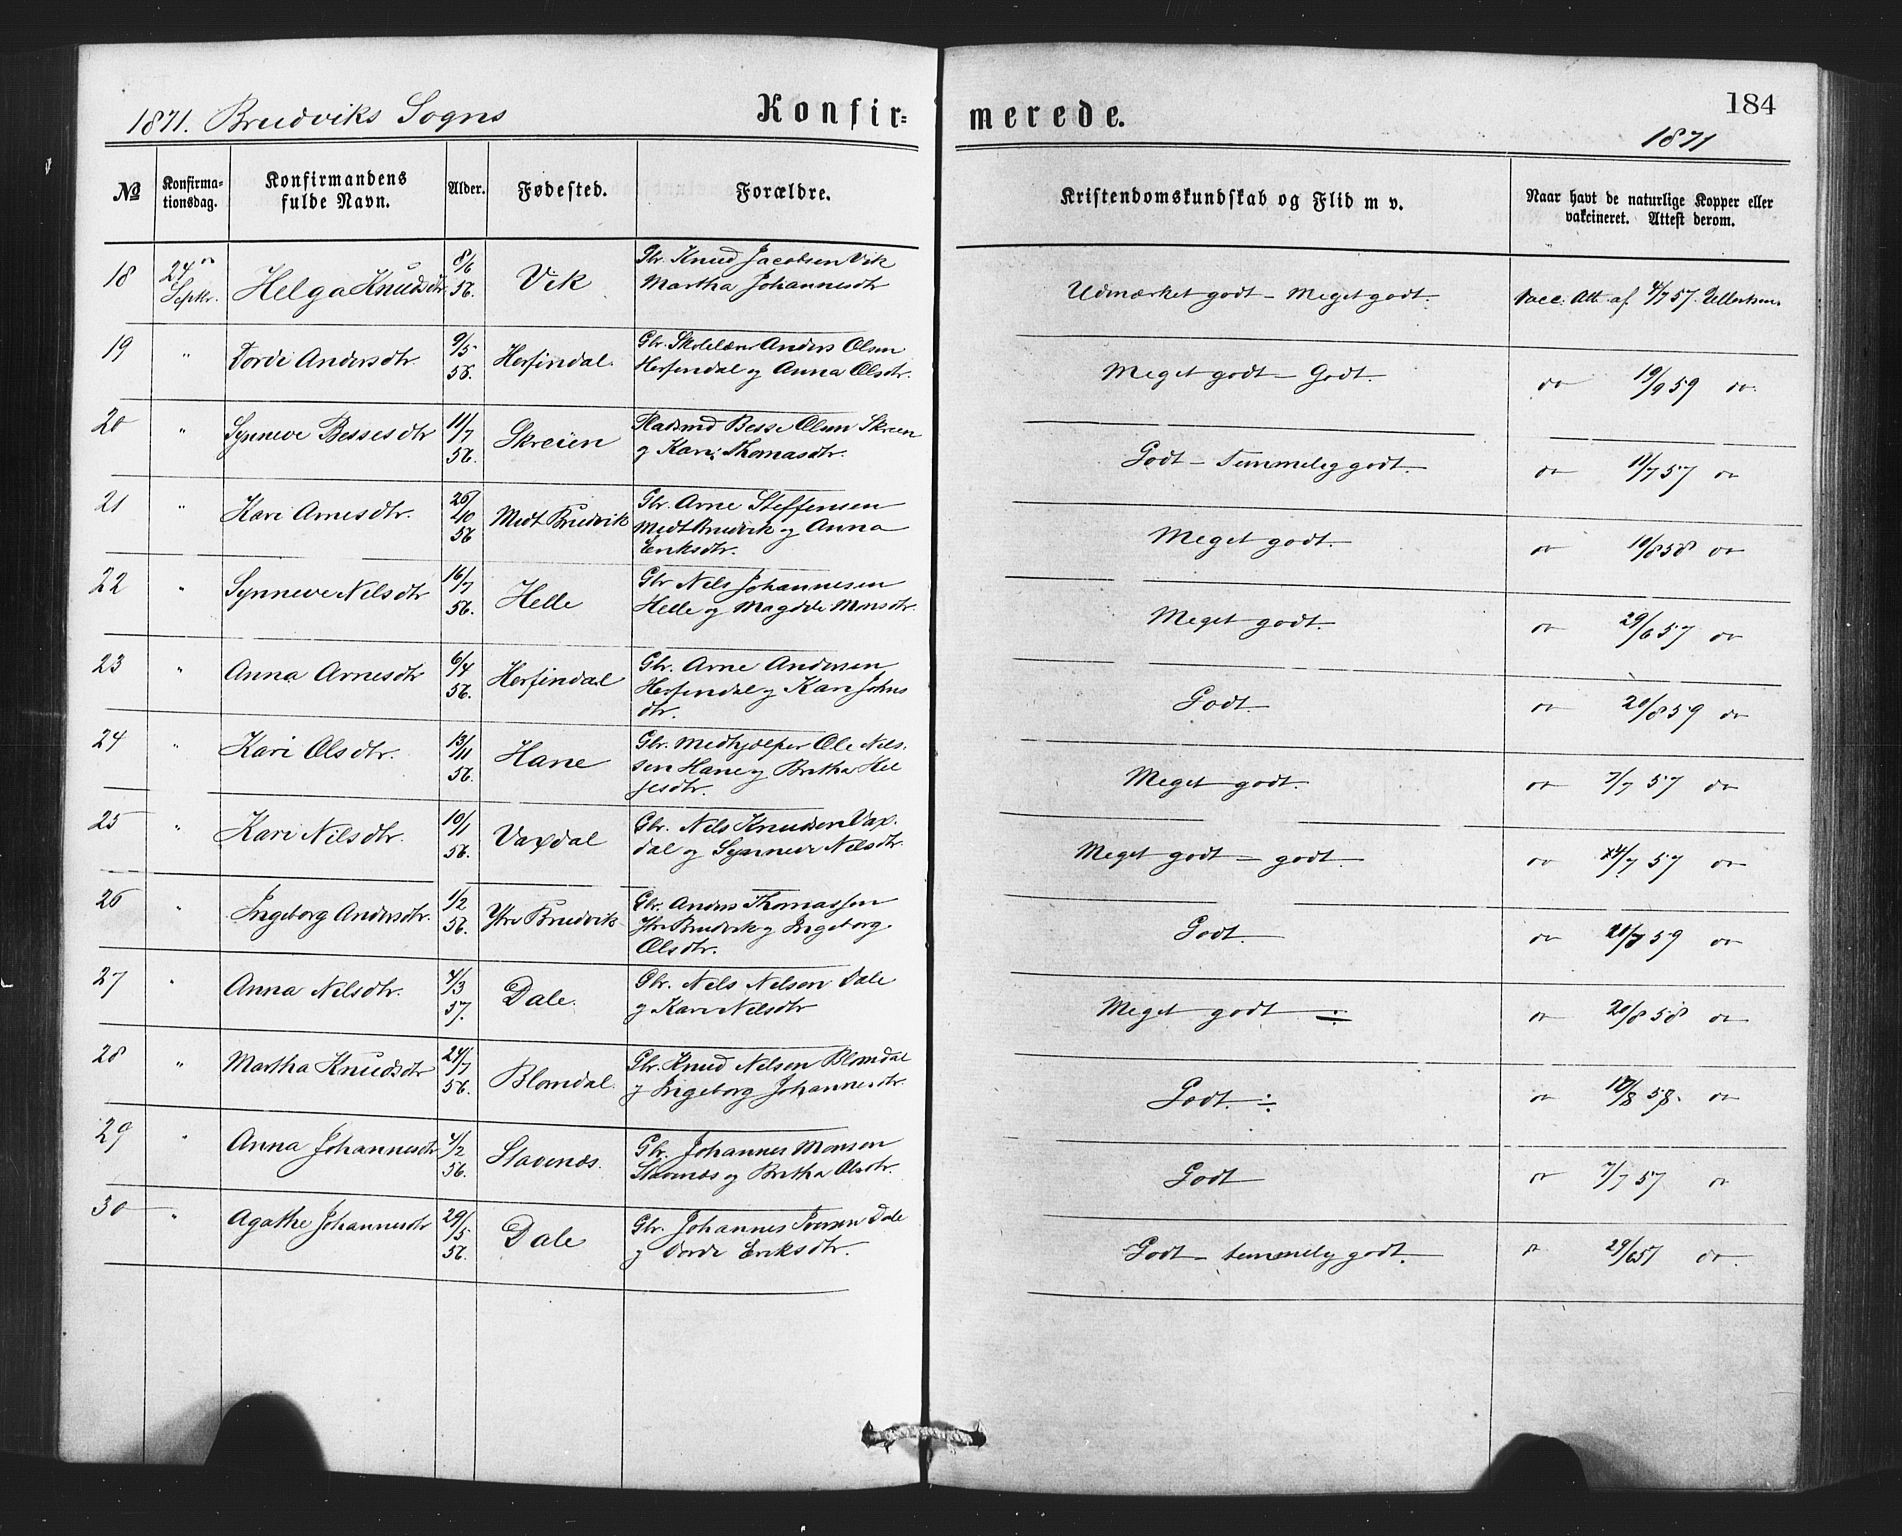 1871. Bruviks Sogns Konfir= merede. 184
1871
No Konfirma-tionsdag. Konfirmandens fulde Navn. Alder. Fødested. Forældre. Kristendomskundskab og Flid m v. Naar havt de naturlige Kopper eller vakcineret. Attest derom.
18 24de Septbr. Helga Knudsdtr 8/6 56. Vik Gbr. Knud Jacobsen Vik
Martha Johannesdtr Udmærket godt - Meget godt. Vacc. Att. af 4/7 57.
19 " Dorde Andersdtr. 9/5 56. Herfindal. Gbr. Skolelær Anders Olsen
Herfindal og Anna Olsdtr. Meget godt - Godt. do 19/9 59 do.
20 " Synneve Bessesdtr 11/7 56. Skreien Pladsmd Besse Olsen Skreen
og Kari Thomasdtr. Godt - temmelig godt. do 11/7 57 do
21 " Kari Arnesdtr. 26/10 56 Midt Bruvik Gbr. Arne Steffensen
Midt Bruvik og Anna
Eriksdtr. Meget godt. do 10/8 58 do
22 " Synneve Nilsdtr 16/7 56. Helle Gbr Nils Johannesen
Helle og Magdele Monsdtr. Meget godt. do 29/6 57 do
23 " Anna Arnesdtr 6/4 56. Herfindal Gbr. Arne Andersen
Herfindal og Kari Johns
dtr. Godt. do 20/8 59 do
24 " Kari Olsdtr. 13/11 56. Hane Gbr. Medhjælper Ole Nils-
sen Hane og Britha Hel
jesdtr. Meget godt. do 7/7 57 do
25 " Kari Nilsdtr. 10/1 56. Vaxdal Gbr. Nils Knudsen Vax-
dal og Synneve Nilsdtr. Meget godt - godt. do 14/7 57 do
26 " Ingeborg Andersdtr. 1/2 56. Ytre Bruvik Gbr. Anders Thomassen
Ytre Bruvik og Ingeborg
Olsdtr. Godt. do 59 do
27 " Anna Nilsdtr. 4/3 57. Dale. Gbr. Nils Nilsen Dale
og Kari Nilsdtr Meget godt ÷ do 20/8 58 do
28 " Martha Knudsdtr 24/7 56. Blomdal. Gbr. Knud Nilsen Blomdal
og Ingeborg Johannesdtr. Godt. ÷ do 18/8 58. do
29 " Anna Johannesdtr 4/2 56. Stavenæs. Gbr. Johannes Monsen
Stavenæs og Britha Olsdtr. Godt do 7/7 57 do
30 " Agathe Johannesdtr 29/5 56. Dale Gbr. Johannes Tonsen Dale
og Dorde Eriksdtr. Godt - temmelig godt. do 29/6 57 do.